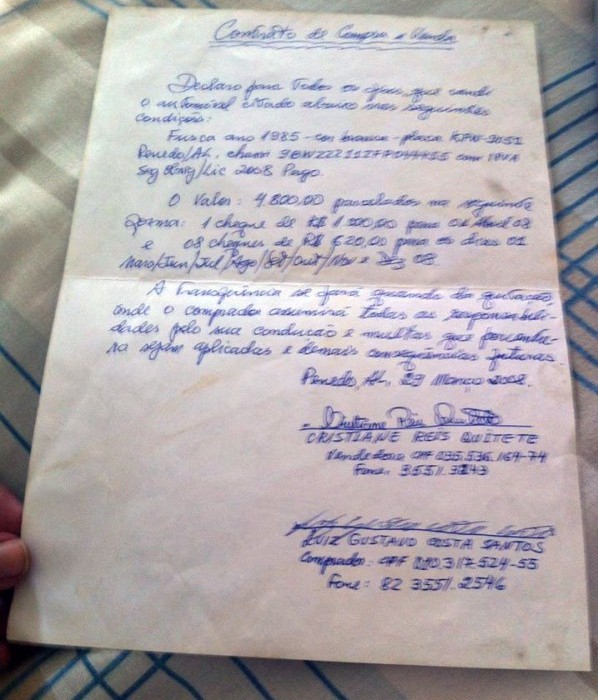 Contrato de Compra e Venda
Declaro para todos os fins, que vendi
o automóvel citado abaixo nas seguintes
condições:
Fusca ano 1985 - cor branca - placa KFW-3051
Penedo/AL, chassi com IPVA
Seg Obrig/Lic 2008 Pago.
O Valor: 4.800,00 parcelados na seguinte
forma: 1 cheque de R$ para 01 Abril 08
e 08 cheques de R$ para os dias 01
Maio/Jun/Jul/Ago/Set/Out/Nov e Dez 08.
A transferência se fará quando da quitação,
onde o comprador assumirá todas as responsabili-
dades pela sua condução e multas que porventu-
ra sejam aplicadas e demais consequências futuras.
Penedo, AL, 29 Março 2008.
CRISTIANE REIS QUITETE
Vendedora CPF 035.536.164-74
Fone: 3551.3243
LUIZ GUSTAVO COSTA SANTOS
Comprador: CPF 317.524-53
Fone: 82 3551.2546